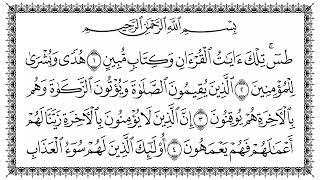 بِسْمِ ٱللَّهِ ٱلرَّحْمَٰنِ ٱلرَّحِيمِ
طسٓ ۚ تِلْكَ ءَايَٰتُ ٱلْقُرْءَانِ وَكِتَابٍ مُّبِينٍ ١ هُدًى وَبُشْرَىٰ
لِلْمُؤْمِنِينَ ٢ ٱلَّذِينَ يُقِيمُونَ ٱلصَّلَوٰةَ وَيُؤْتُونَ ٱلزَّكَوٰةَ وَهُم
بِٱلْءَاخِرَةِ هُمْ يُوقِنُونَ ٣ إِنَّ ٱلَّذِينَ لَا يُؤْمِنُونَ بِٱلْءَاخِرَةِ زَيَّنَّا لَهُمْ
أَعْمَٰلَهُمْ فَهُمْ يَعْمَهُونَ ٤ أُو۟لَٰٓئِكَ ٱلَّذِينَ لَهُمْ سُوٓءُ ٱلْعَذَابِ